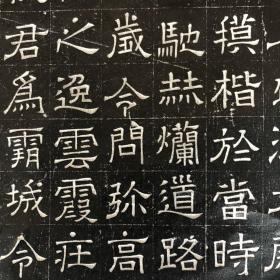 摸楷於當時
馳赫爛道路
歲令問弥高
之逸雲霞庄
君爲霸城令